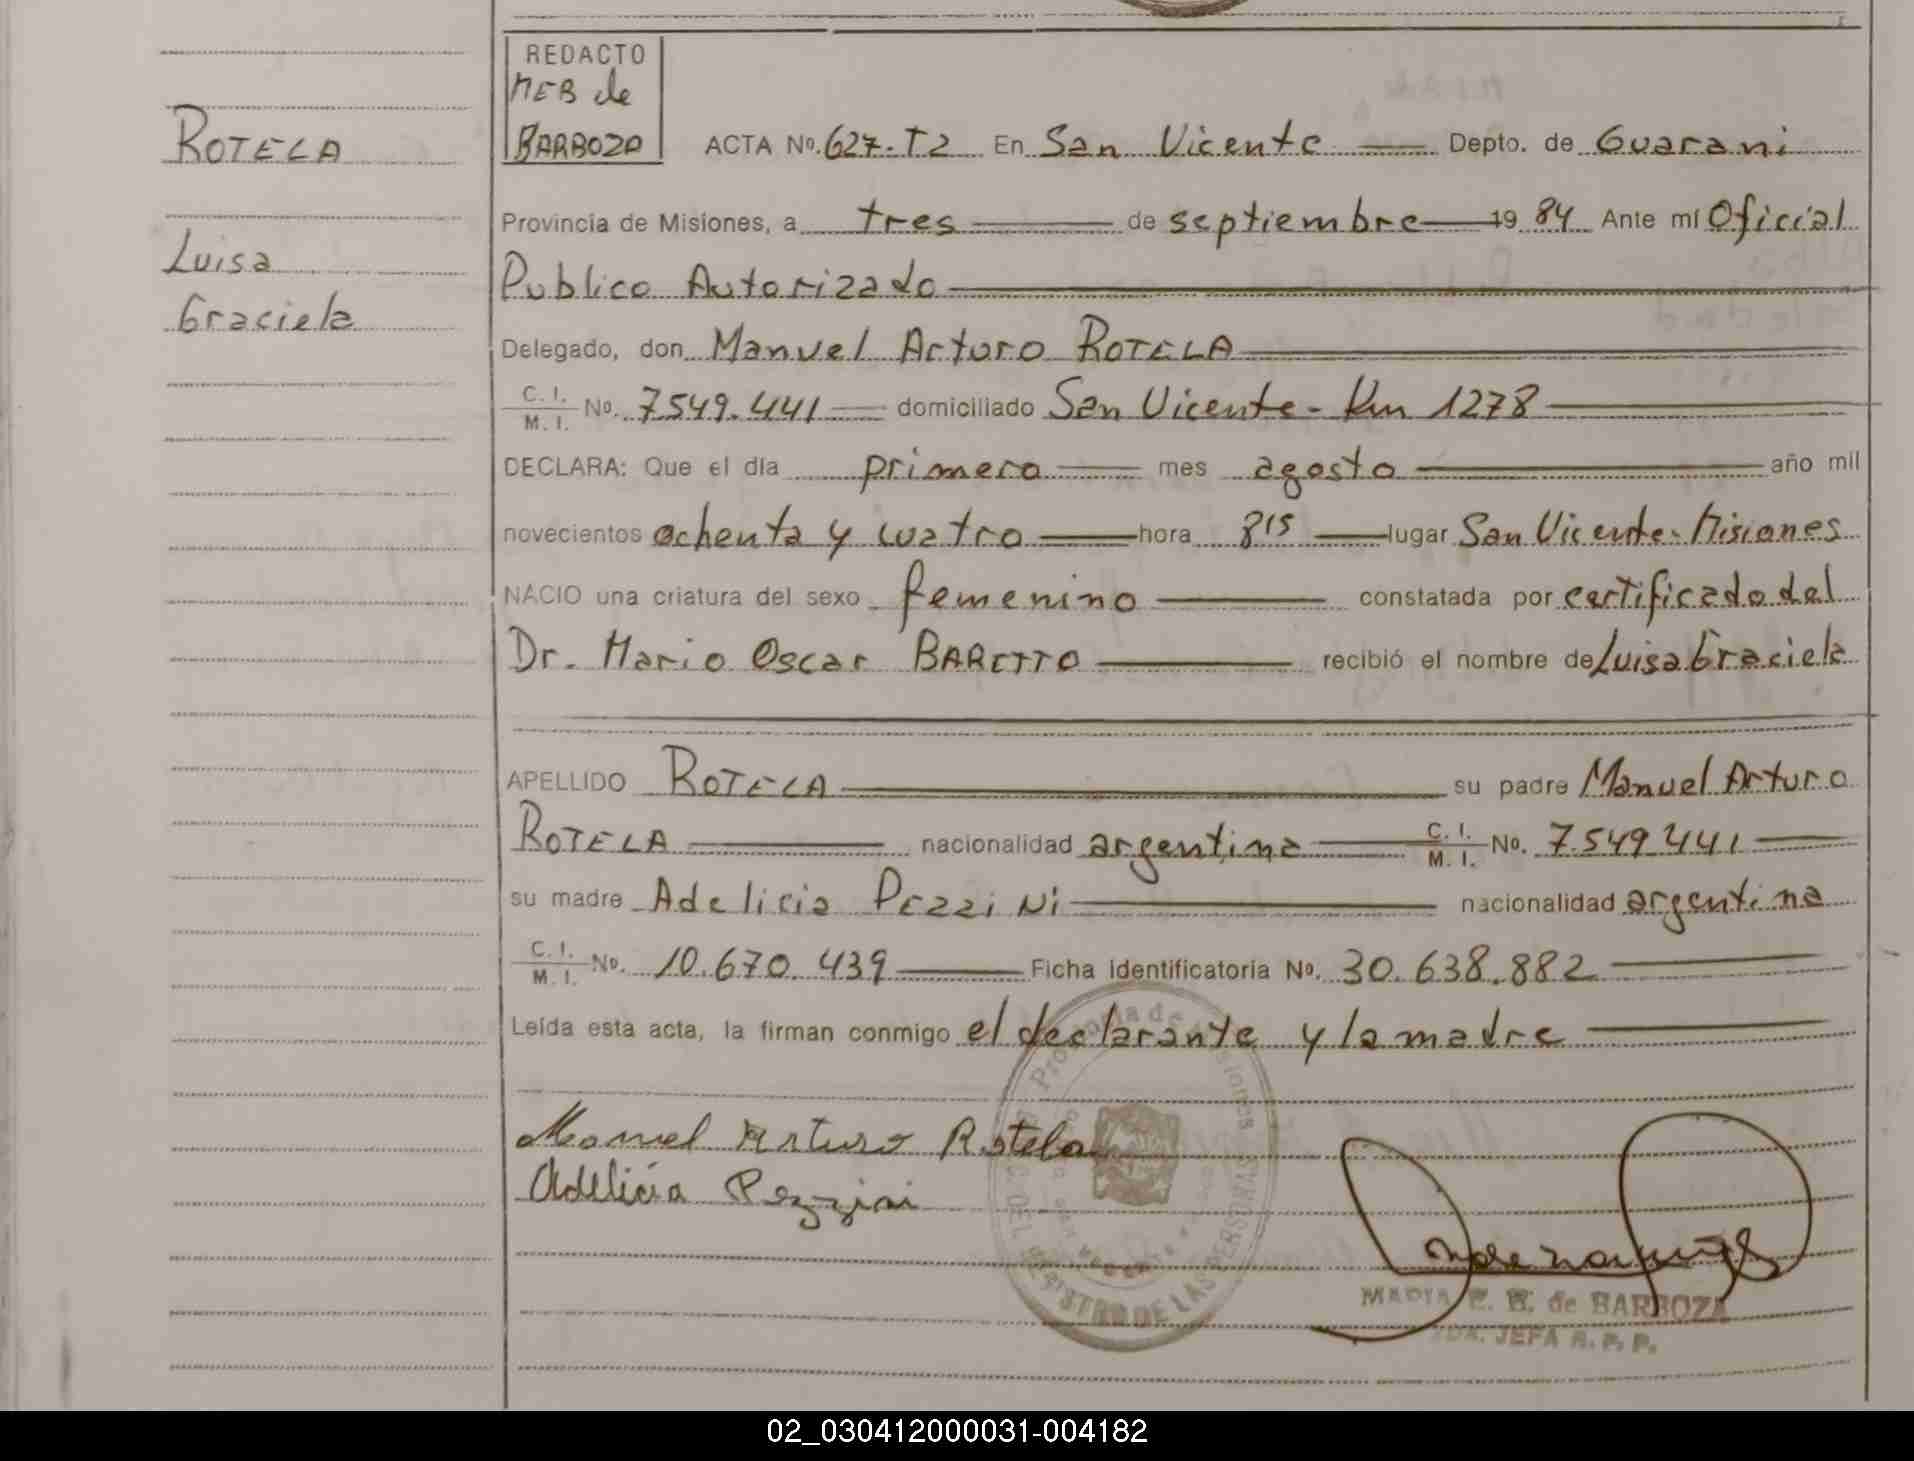 ROTELA
Luisa
Graciela
REDACTO
MEB de
BARBOZA
ACTA Nº. 627-T2 En San Vicente Depto. de Guarani
Provincia de Misiones, a tres de septiembre 19 84 Ante mí Oficial
Publico Autorizado
Delegado, don Manuel Arturo ROTELA
C. I. / M. I. Nº. 7.549.441 domiciliado San Vicente - Km 1278
DECLARA: Que el día primero mes agosto año mil
novecientos ochenta y cuatro hora 8 15 lugar San Vicente - Misiones
NACIO una criatura del sexo femenino constatada por certificado del
Dr. Mario Oscar BARETTO recibió el nombre de Luisa Graciela
APELLIDO ROTELA su padre Manuel Arturo
ROTELA nacionalidad argentina C. I. / M. I. Nº. 7.549.441
su madre Adelicia PEZZINI nacionalidad argentina
C. I. / M. I. Nº. 10.670.439 Ficha Identificatoria Nº. 30.638.882
Leída esta acta, la firman conmigo el declarante y la madre
Manuel Arturo Rotela
Adelicia Pezzini
Provincia de Misiones
REGISTRO DE LAS PERSONAS
MARIA E. B. de BARBOZA
JEFA R. P. P.
02_030412000031-004182